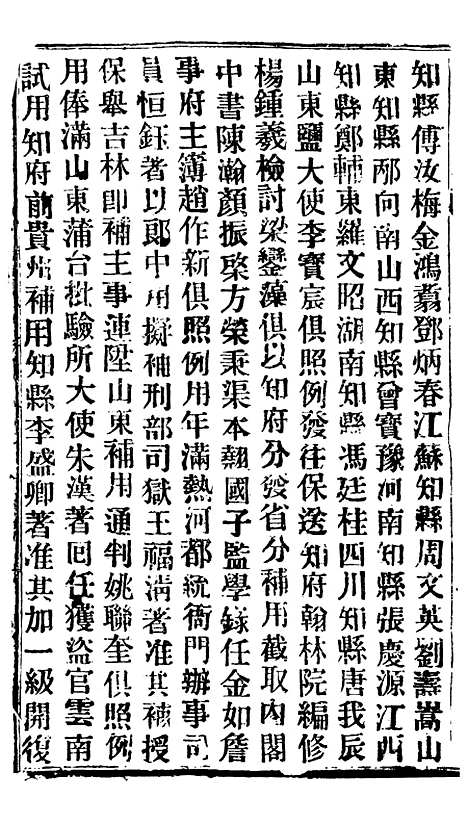 知縣傅汝梅金鴻翥鄧炳春江蘇知縣周文英劉壽嵩山
東知縣邴向南山西知縣曾寶豫河南知縣張慶源江西
知縣鄭輔東羅文昭湖南知縣馮廷桂四川知縣唐我辰
山東鹽大使李寶宸俱照例發往保送知府翰林院編修
楊鍾羲檢討梁鑾藻俱以知府分發省分補用截取內閣
中書陳瀚顏振棨方榮秉渠本翹國子監學錄任金如詹
事府主簿趙作新俱照例用年滿熱河都統衙門辦事司
員恒鈺著以郎中用擬補刑部司獄王福淸著准其補授
保舉吉林卽補主事連陞山東補用通判姚聯奎俱照例
用俸滿山東蒲台批驗所大使朱漢著回任獲盜官雲南
試用知府前貴州補用知縣李盛卿著准其加一級開復